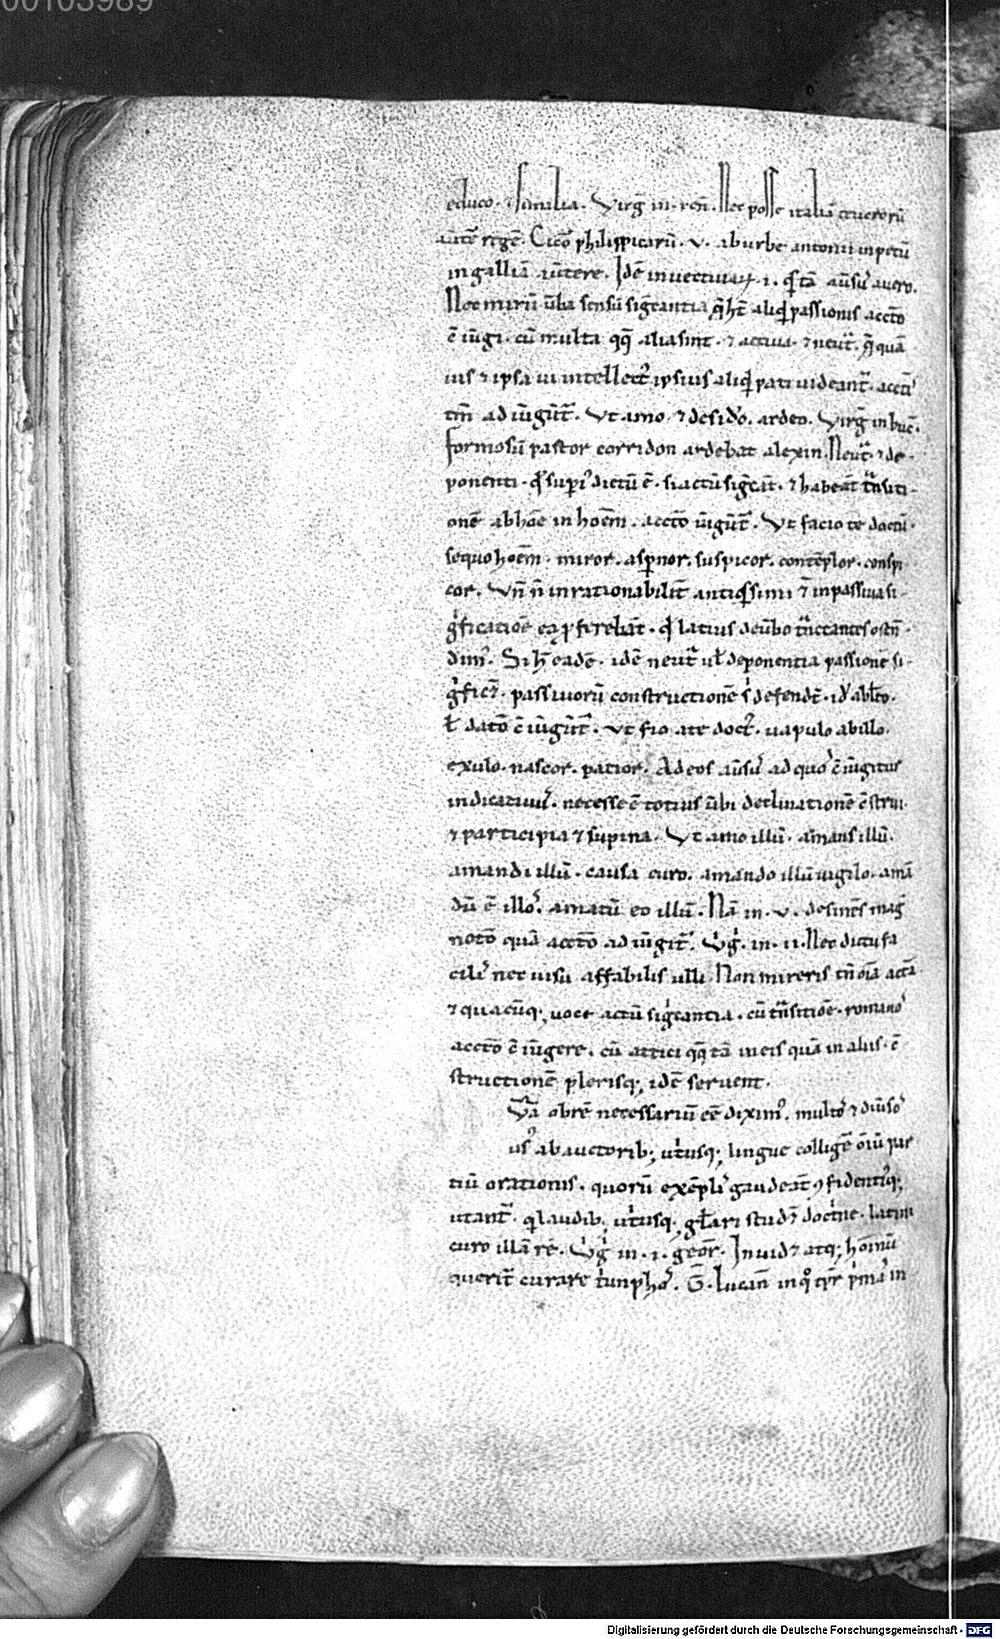 00103989
educo. & similia. Virg̅ in. ren̅. Nec posse italiā teucrorū
auertē regē. Cicō philippicarū. v. ab urbe antonii inpetū
in galliā auertere. Idē inuectiuaꝝ .i.
Nec mirū ūba sensū sig̅cantia aliqd̅ passionis accto̅
ē iūgi. cū multa qq̨ alia sint. & actiua. & neut̅.
ius & ipsa ui intellect᷒ ipsius aliqd̅ pati uideant̅. accti᷒
tm̅ adiūgūt̅. Vt amo. & desid̅o. ardeo. Virg̅ in buc̅.
formosū pastor corridon ardebat alexin. Neut̅. & de
ponenti. qd̅ sup̅i᷒ dictū ē. si actū sig̅cēt. & habeāt t̅nsiti
onē ab hōe in hoēm. accto̅ iūgūt̅. Vt facio te doctū.
sequo hoēm. miror. asp̅nor. suspicor. contēplor. conspi
cor. Vn̅ n̅ inrationabilit̅ antiq̅ssimi & in passiua si
g̅ficatiōe ea p̱ferebāt. qd̅ latius de ūbo t̅ctantes ostn̅
dim᷒. Si h̅ eadē. idē neut̅ ul̅ deponentia passionē si
g̅fic&. passiuorū constructionē s̅ defendt̅. id᷒ abl̅to.
ł dato̅ ē iūgūt̅. ut fio a te doct᷒. uapulo ab illo.
exulo. nascor. patior. Ad eos ausū᷒ ad quo᷒ ē iūgitur
indicatiuu᷒. necesse ē totius ūbi declinationē ēstrui.
& participia & supina. Vt amo illū. amans illū.
amandi illū. causa curo. amando illū uigilo. amā
dū ē illo᷒. amatū eo illū. Nā in. v. desinēs mag̅
noto̅ quā accto̅ adiūgit̅. V̅g̅. in. ii. Nec dictu fa
cili᷒ nec uisu affabilis ulli. Non mireris tn̅ oīa acta̅
& quacūq; uoce actū sig̅cantia. cū t̅nsitiōe. romano᷒
accto̅ ē iūgere. cū attici qq̨ tā in eis quā in aliis. ē
structionē plerisq; idē seruent.
Vā ob rē necessariū eē dixim᷒. multo᷒ & diūso᷒
us᷒ ab auctorib; ut̅usq; lingue collig̅e oīū par
tiū orationis. quorū exēpli᷒ gaudeāt ꝯfidenti᷒q;
utant̅. qi laudib; ut̅usq; gl̅ari stud& doct̅ne. latini
curo illā rē. V̅g̅ in .i. geor̅. Inuid& atq; hominū
querit̅ curare t̅iunpho᷒. G̅. Lucan̅ in
Digitalisierung gefördert durch die Deutsche Forschungsgemeinschaft - DFG